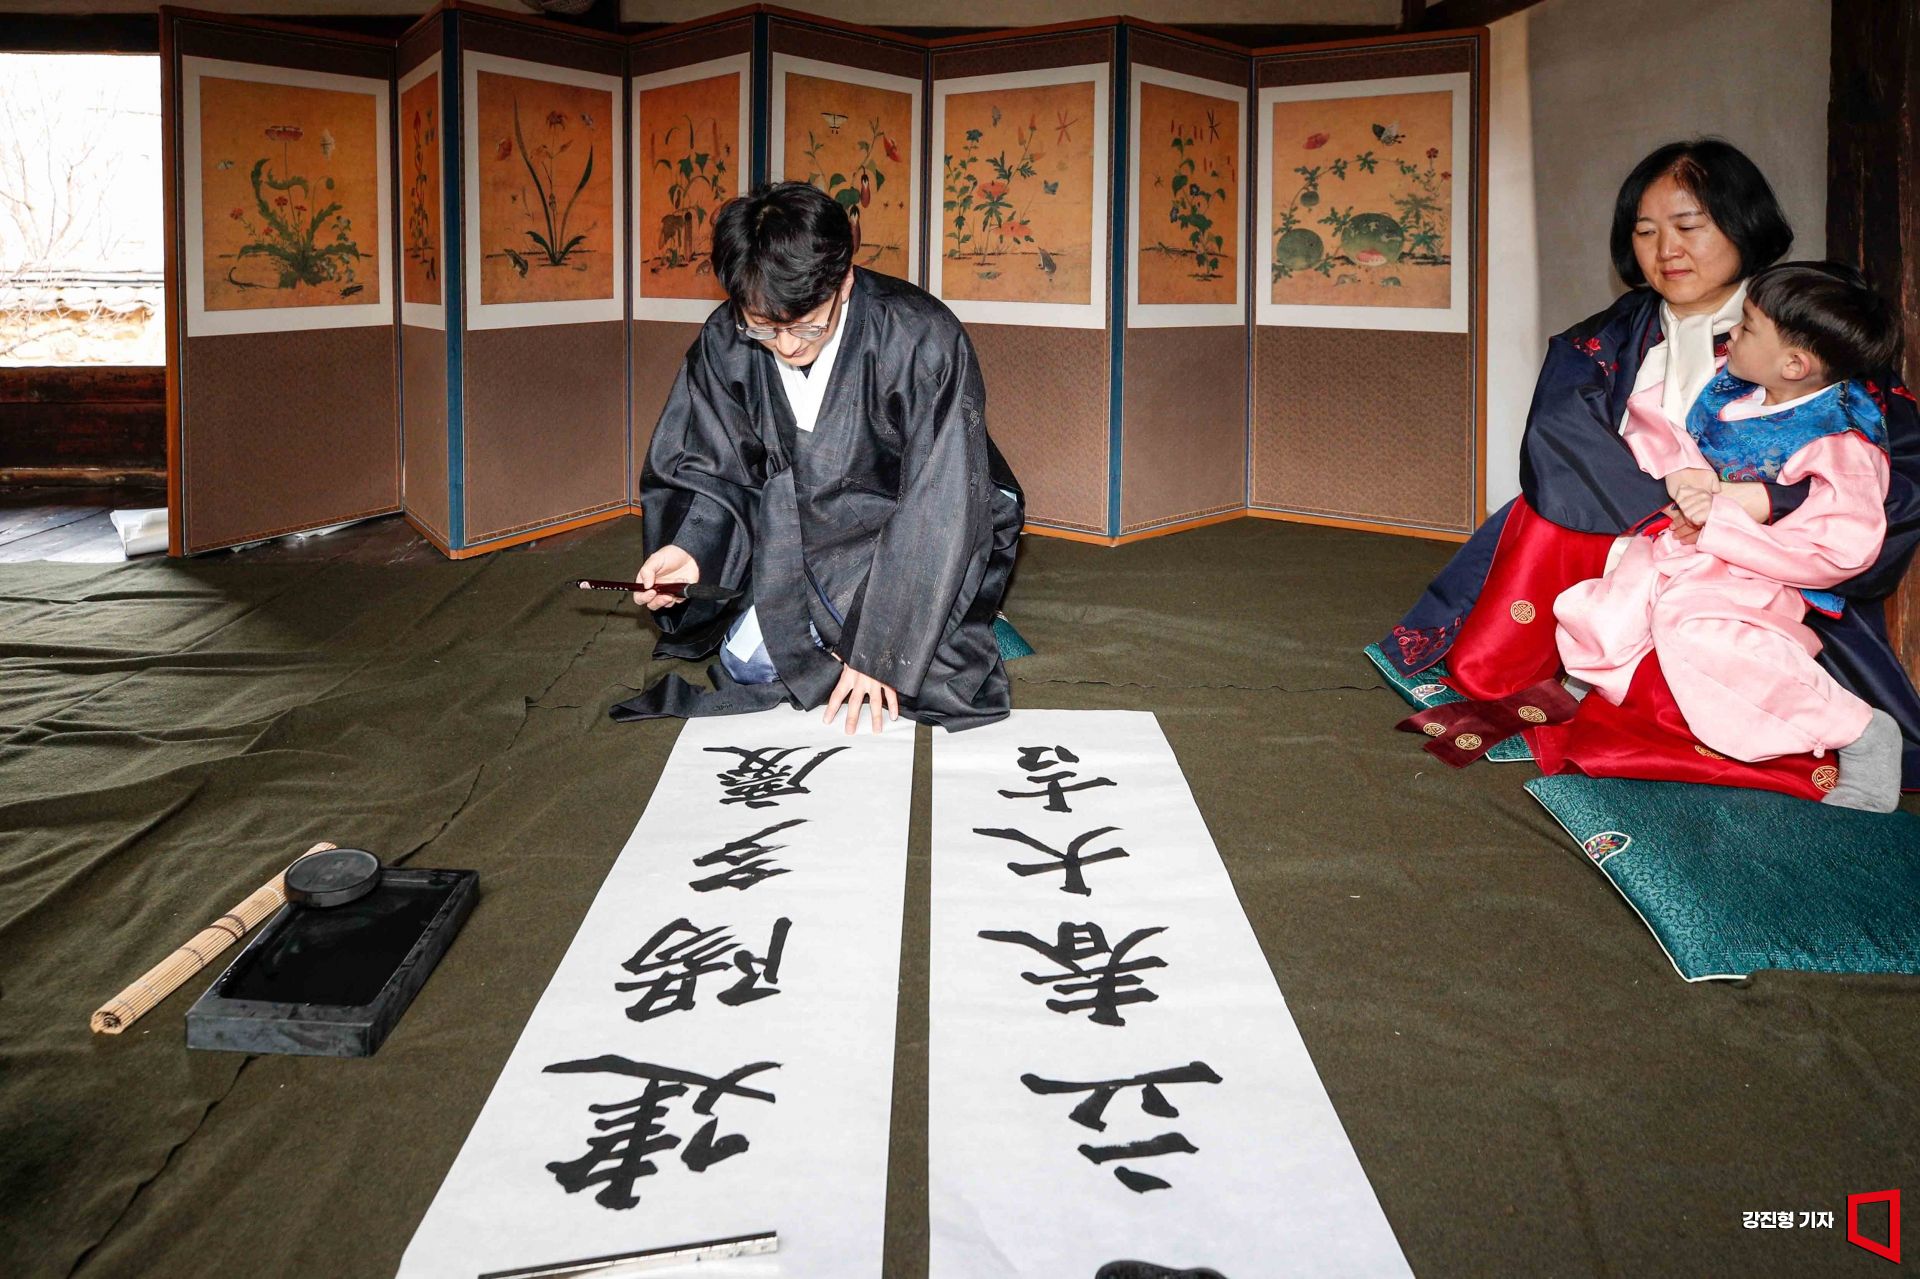 立春大吉
建陽多慶
강진형 기자